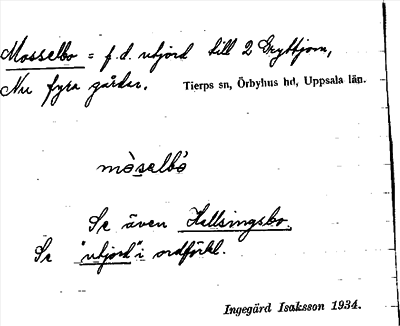 Mosselbo = f.d. utjord till 2 Gryttjom,
Nu fyra gårdar. Tierps sn, Örbyhus hd, Uppsala län.
mòselbó
Se även Hällsingsbo.
Se "utjord" i ordförkl.
Ingegärd Isaksson 1934.